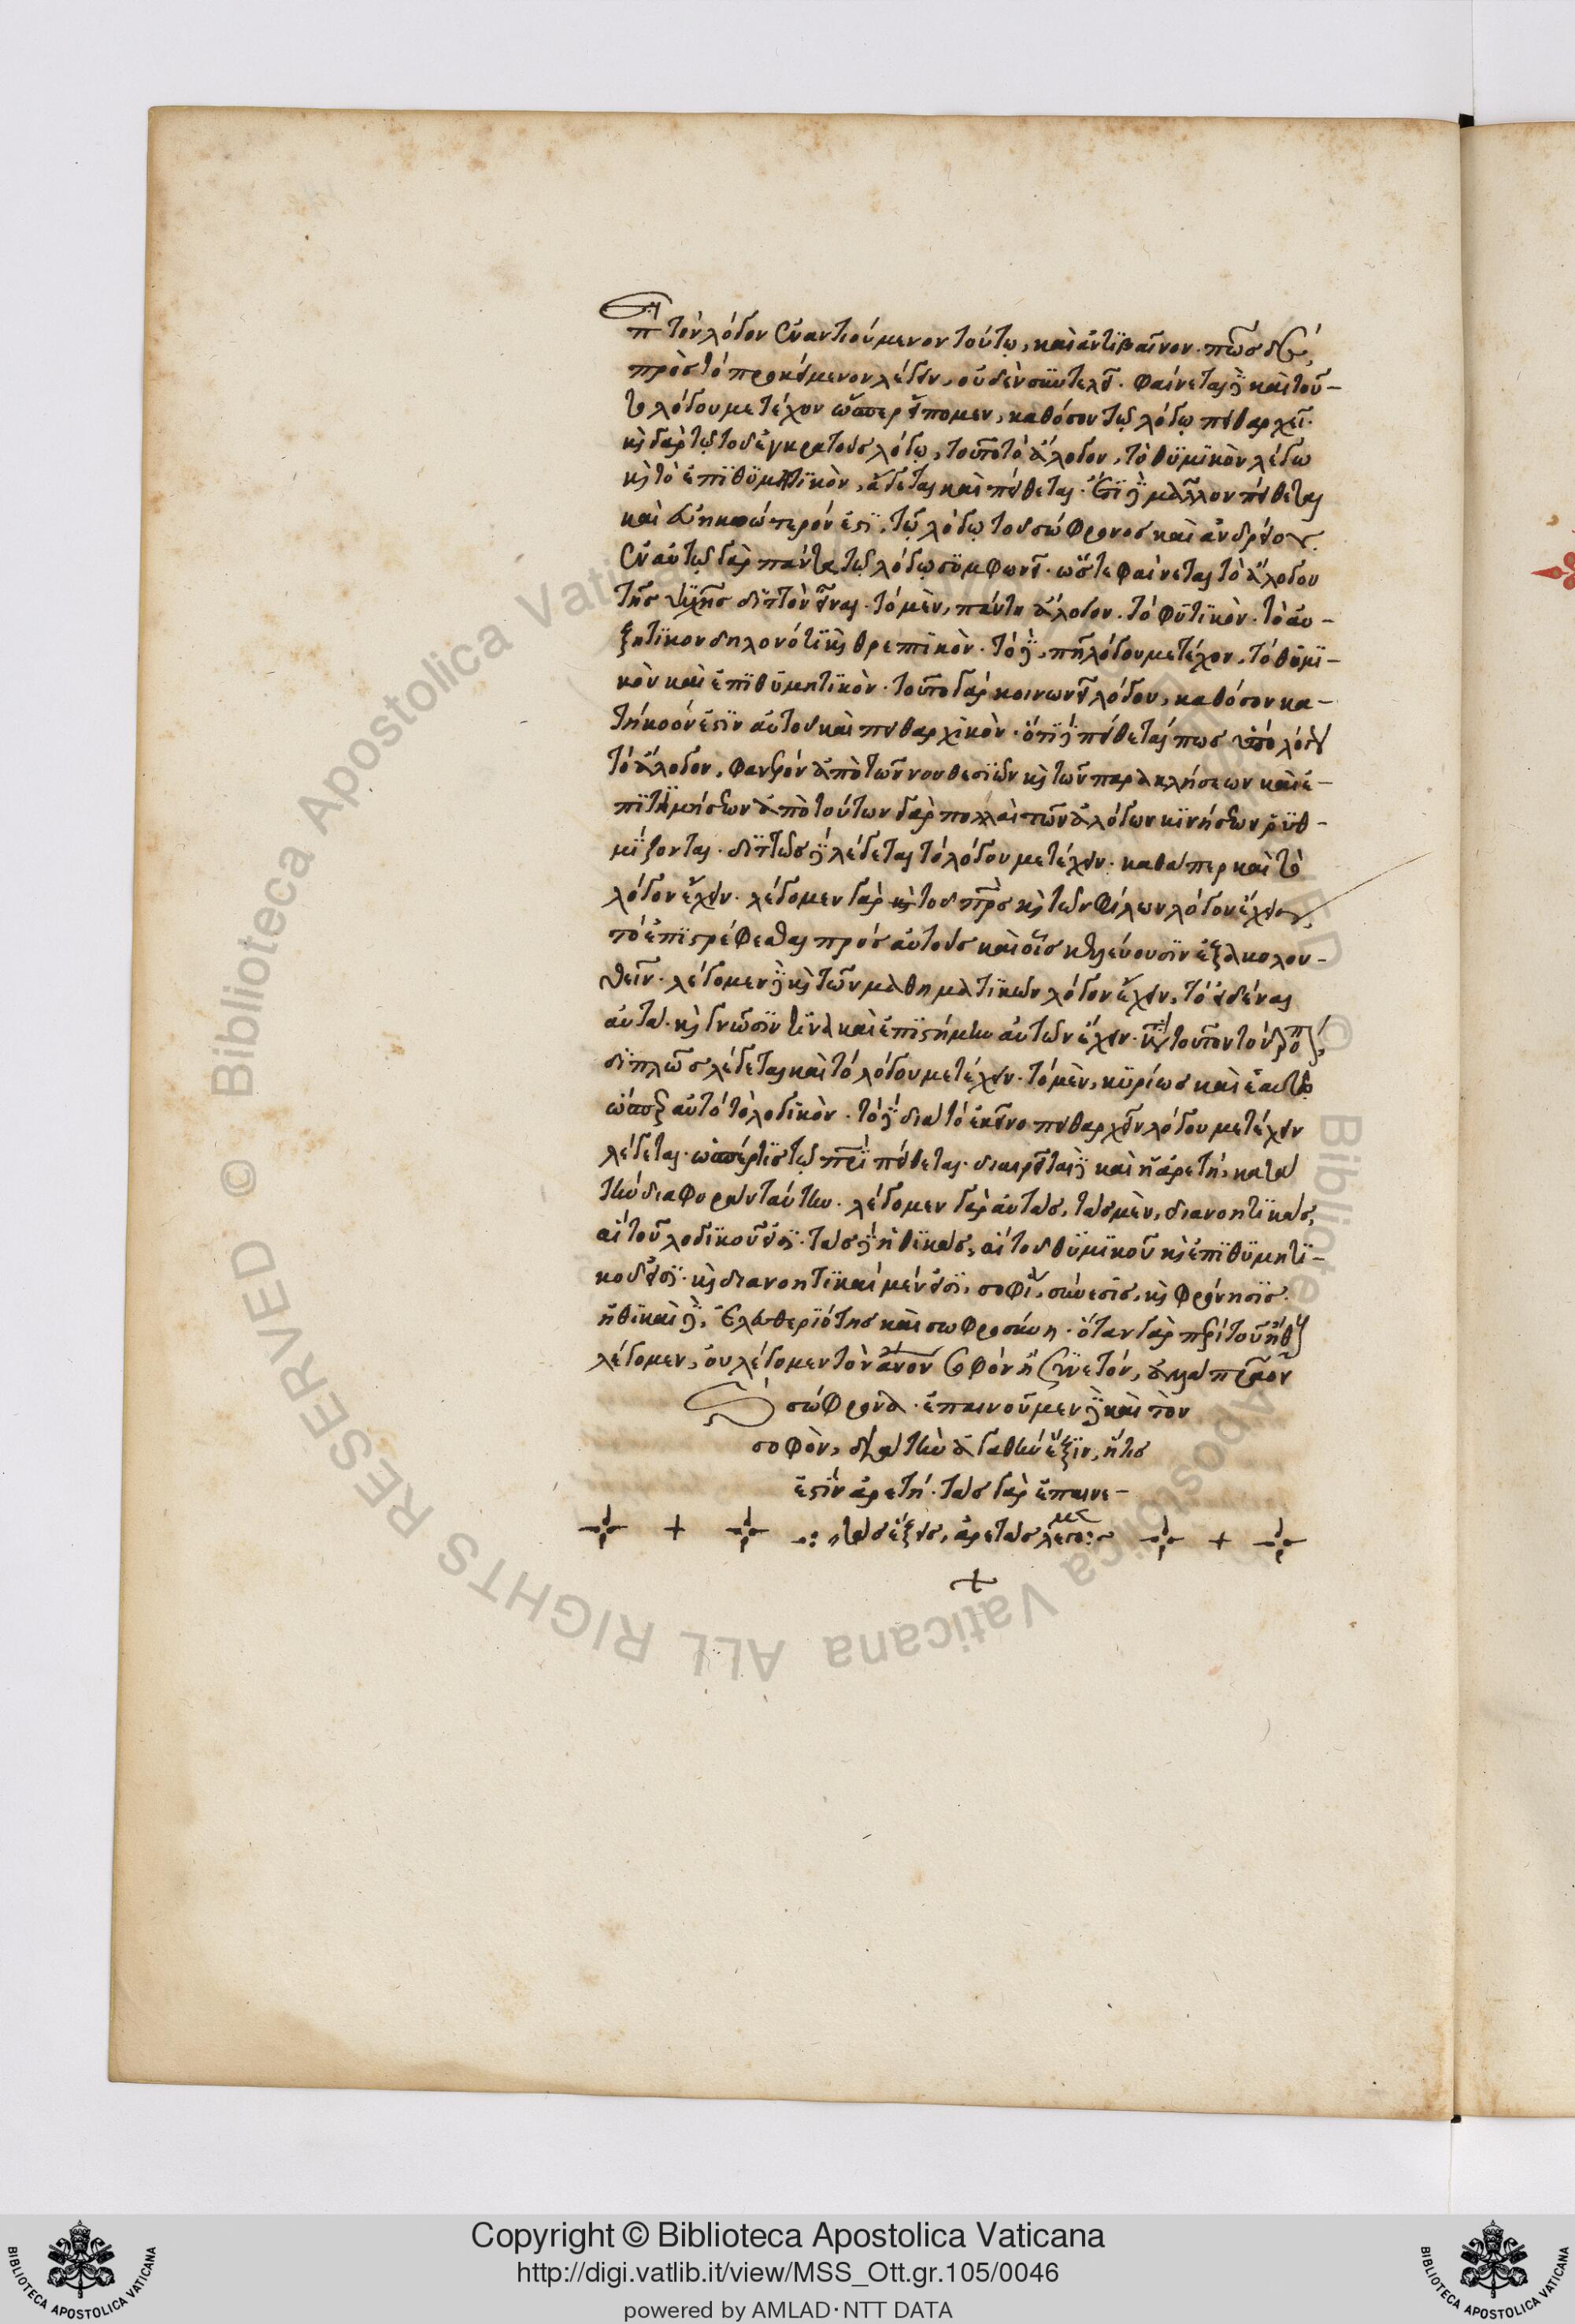 π τὸν λόγον ἐναντιούμενον τούτῳ, καὶ ἀντιβαῖνον. πῶς δὲ,
πρὸς τὸ προκείμενον λέγειν, οὐδὲν συντελεῖ. φαίνεται δὲ καὶ τοῦ-
το λόγου μετέχον ὥσπερ εἴπομεν, καθόσον τῷ λόγῳ πειθαρχεῖ.
καὶ γὰρ τῷ τοῦ ἐγκρατοῦς λόγῳ, τοῦτο τὸ ἄλογον, τὸ θυμικὸν λέγω
καὶ τὸ ἐπιθυμητικὸν, ἄγεται καὶ πείθεται. ἔτι δὲ μᾶλλον πείθεται
καὶ εὐηκοώτερόν ἐστι, τῷ λόγῳ τοῦ σώφρονος καὶ ἀνδρείου.
ἐν αὐτῷ γὰρ πάντα τῷ λόγῳ συμφωνεῖ. ὥστε φαίνεται τὸ ἄλογον
τῆς ψυχῆς διττὸν εἶναι. τὸ μὲν, πάντη ἄλογον. τὸ φυτικὸν. τὸ αὐ-
ξητικὸν δηλονότι καὶ θρεπτικὸν. τὸ δὲ, πῆ λόγου μετέχον, τὸ θυμι-
κὸν καὶ ἐπιθυμητικὸν. τοῦτο γὰρ κοινωνεῖ λόγου, καθόσον κα-
τήκοόν ἐστιν αὐτοῦ καὶ πειθαρχικὸν. ὅτι δὲ πείθεταί πως ὑπὸ λόγου
τὸ ἄλογον, φανερὸν ἀπὸ τῶν νουθεσιῶν καὶ τῶν παρακλήσεων καὶ ἐ-
πιτιμήσεων ἀπὸ τούτων γὰρ πολλαὶ τῶν ἀλόγων κινήσεων ῥυθ-
μίζονται. διττῶς δὲ λέγεται τὸ λόγου μετέχειν. καθάπερ καὶ τὸ
λόγον ἔχειν. λέγομεν γὰρ καὶ τοῦ πρς καὶ τῶν φίλων λόγον ἔχειν,
τὸ ἐπιστρέφεσθαι πρὸς αὐτοὺς καὶ οἷς κελεύουσιν ἐξακολου-
θεῖν. λέγομεν δὲ καὶ τῶν μαθηματικῶν λόγον ἔχειν, τὸ εἰδέναι
αὐτὰ. καὶ γνῶσιν τινὰ καὶ ἐπιστήμην αὐτῶν ἔχειν. κατὰ τοῦτον τὸν τρόπον,
διπλῶς λέγεται καὶ τὸ λόγου μετέχειν. τὸ μὲν, κυρίως καὶ ἐν ἑαυτῷ
ὥσπερ αὐτὸ τὸ λογικὸν. τὸ δὲ διὰ τὸ ἐκείνῳ πειθαρχεῖν λόγου μετέχειν
λέγεται. ὥσπέρ τις τῷ πρὶ πείθεται. διαιρεῖται δὲ καὶ ἡ ἀρετὴ, κατὰ
τὴν διαφορὰν ταύτην. λέγομεν γὰρ αὐτὰς, τὰς μὲν, διανοητικὰς,
αἳ τοῦ λογικοῦ εἰσι. τὰς δὲ ἠθικὰς, αἳ τοῦ θυμικοῦ καὶ ἐπιθυμητι-
κοῦ εἰσι. καὶ διανοητικαὶ μέν εἰσι, σοφία, σύνεσις, καὶ φρόνησις.
ἠθικαὶ δὲ, ἐλευθεριότης καὶ σωφροσύνη. ὅταν γὰρ περὶ τοῦ ἤθους
λέγομεν, οὐ λέγομεν τὸν ἄνον σοφὸν ἢ συνετὸν, ἀλλὰ πρᾶον
ἢ σώφρονα. ἐπαινοῦμεν δὲ καὶ τὸν
σοφὸν, διὰ τὴν ἀγαθὴν ἕξιν, ἥτις
ἐστὶν ἀρετή. τὰς γὰρ ἐπαινε-
τὰς ἕξεις, ἀρετὰς λέγομεν :~
Copyright © Biblioteca Apostolica Vaticana
http://digi.vatlib.it/view/MSS_Ott.gr.105/0046
powered by AMLAD·NTT DATA
BIBLIOTECA APOSTOLICA VATICANA
BIBLIOTECA APOSTOLICA VATICANA
© Biblioteca Apostolica Vaticana ALL RIGHTS RESERVED